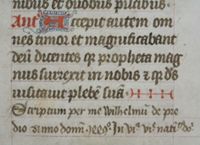 nibus et duobus piscibus.
Ant' Accepit autem om
nes timor et magnificabant
deū dicentes qz propheta mag
nus surrexit in nobis & qz ds
visitavit plebē suā
Scriptum per me Wilhelmū de pre
dio domī